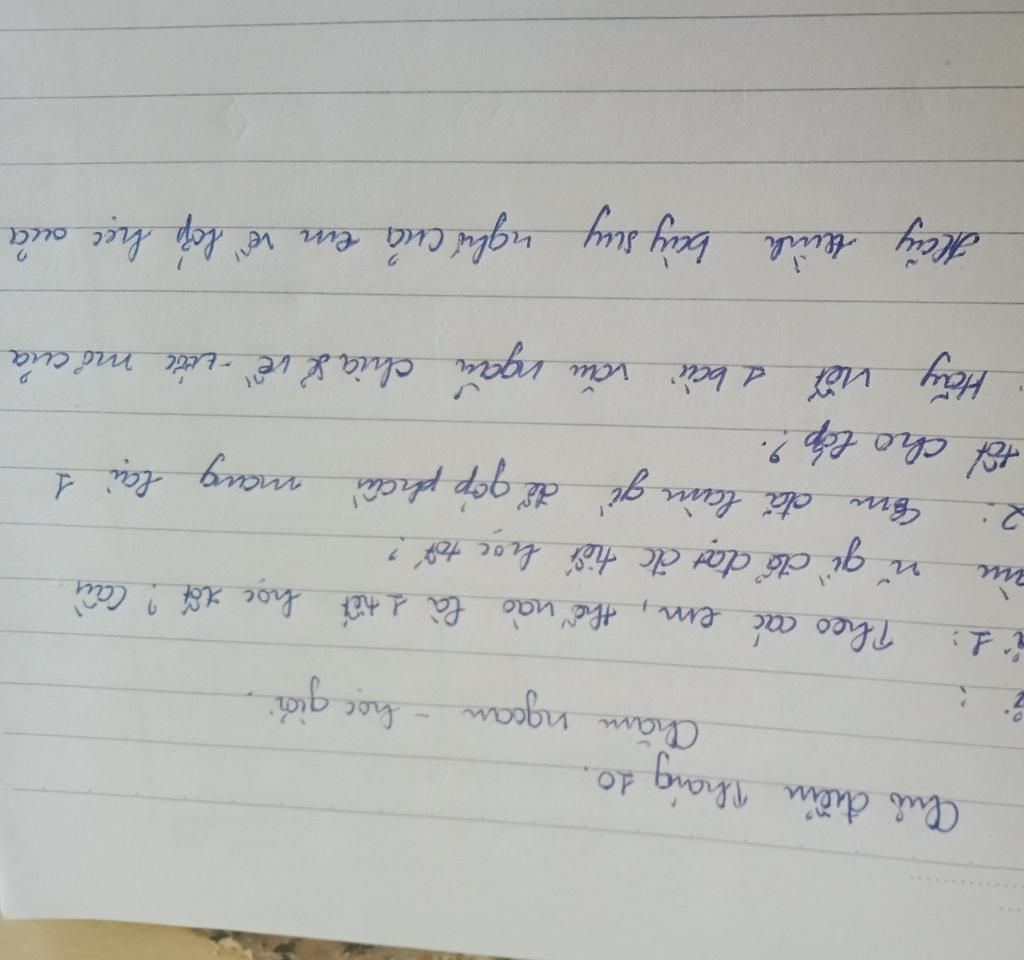 Chủ điểm Tháng 10.
Chăm ngoan - học giỏi.
:
1: Theo các em, thế nào là 1 tiết học tốt? Cần
gì để đạt đc tiết học tốt?
2: Em đã làm gì để góp phần mang lại 1
tốt cho lớp?
Hãy viết 1 bài văn ngắn chia sẻ về ước mơ của
Hãy trình bày suy nghĩ của em về lớp học của